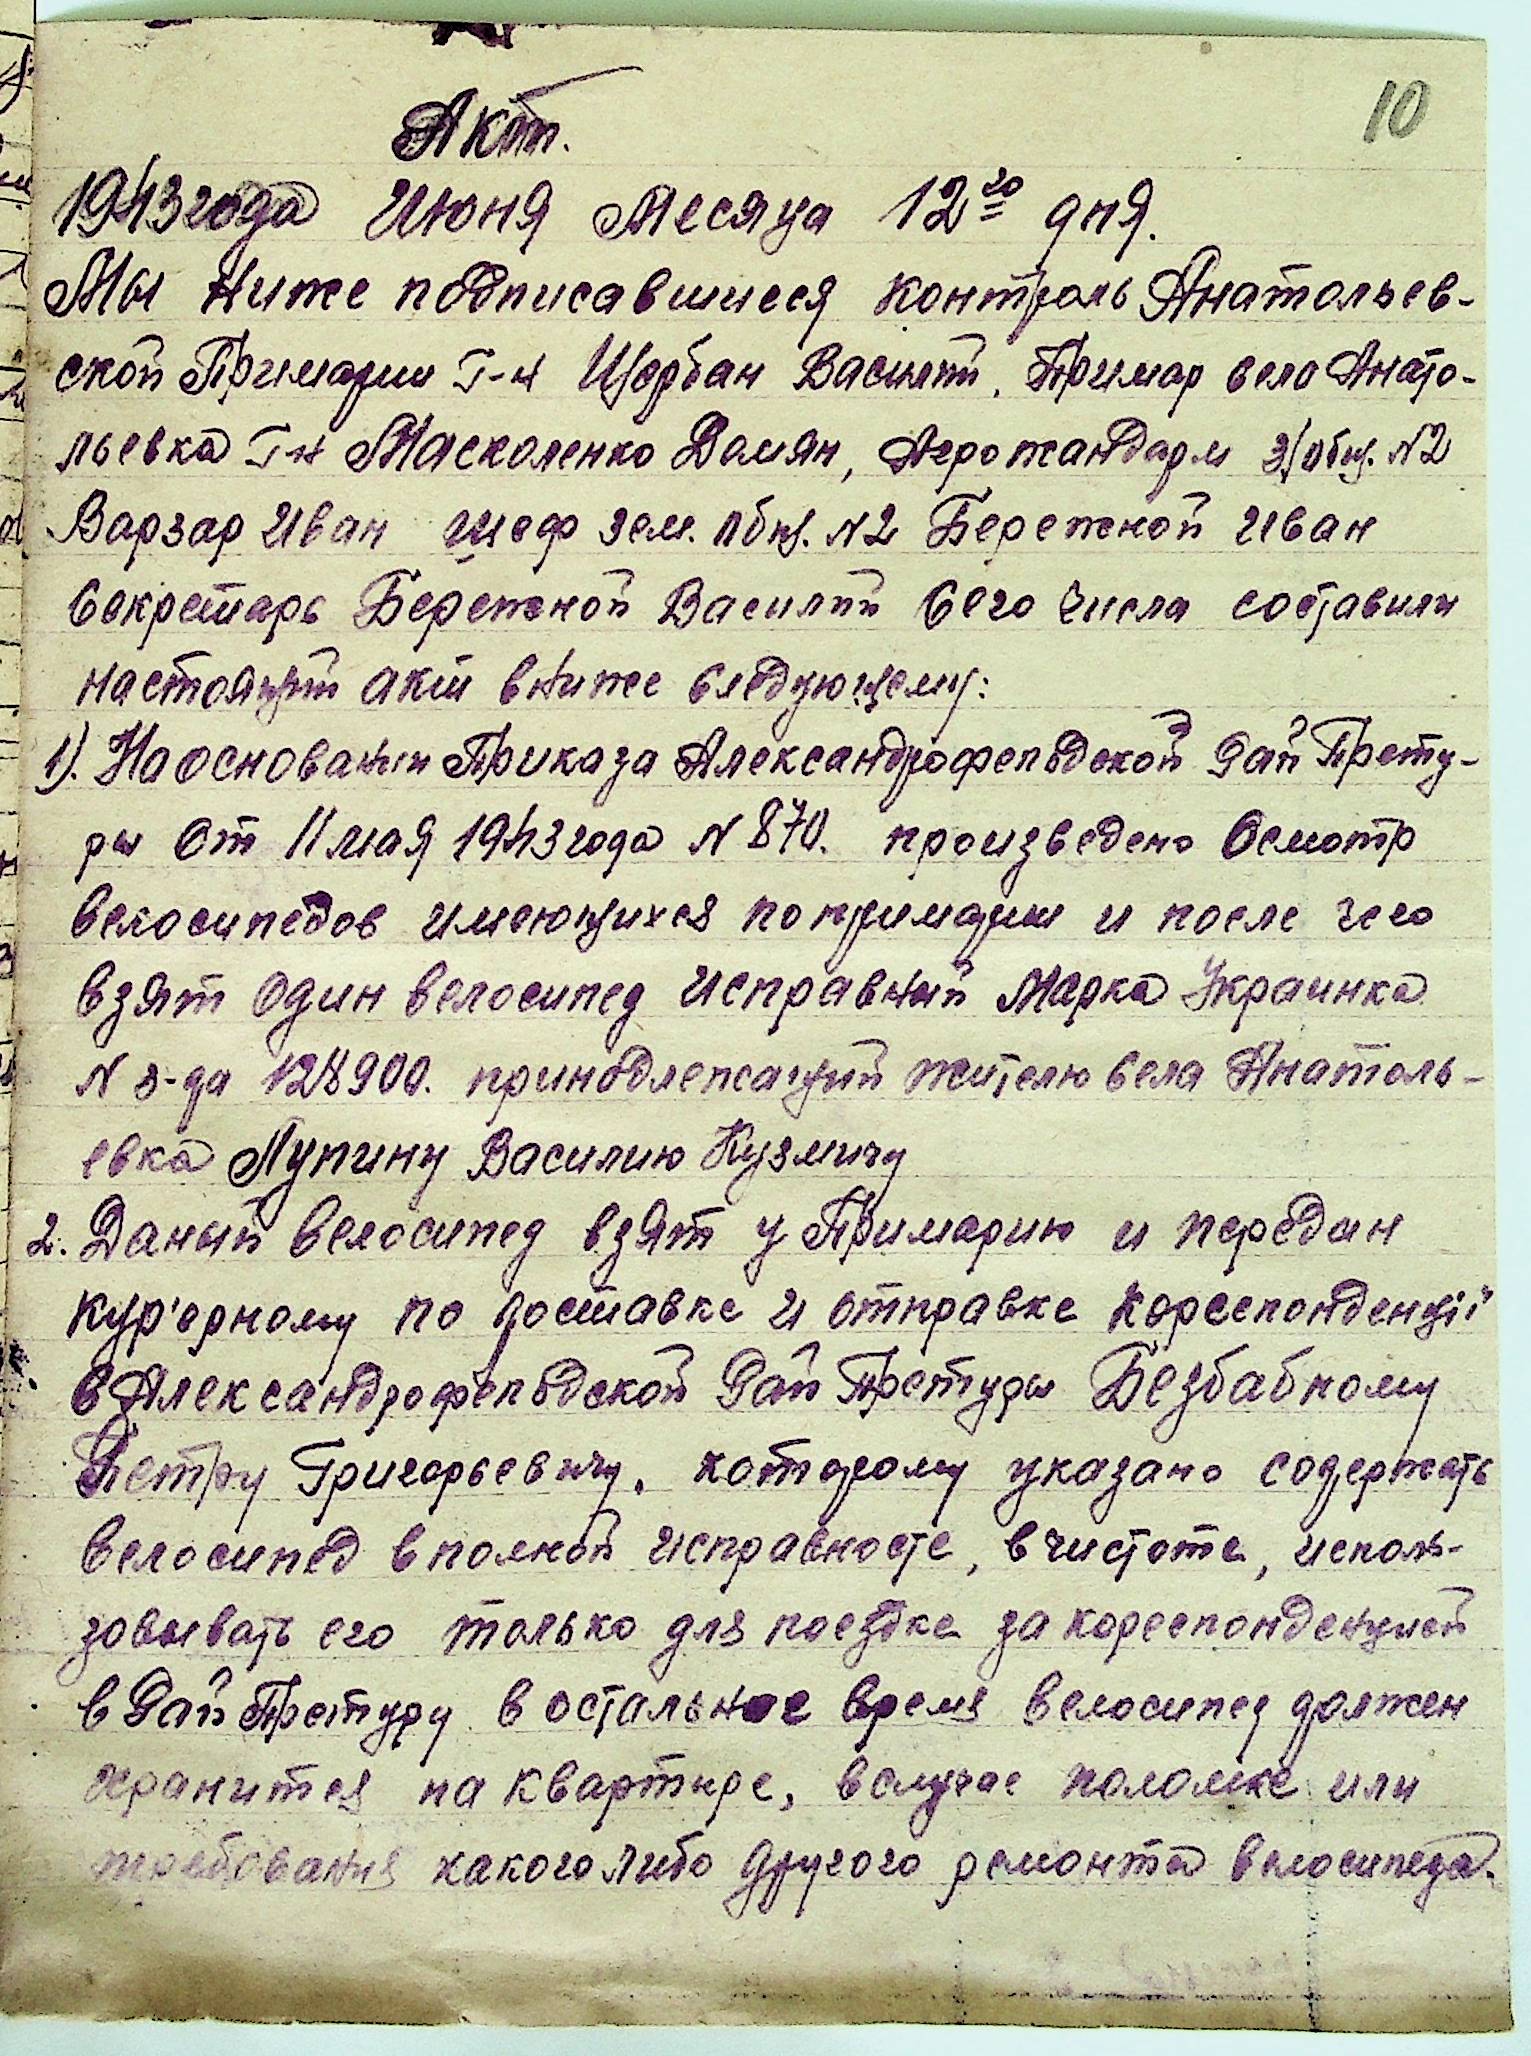 10
Акт.
1943 года Июня Месяца 12го дня.
Мы ниже подписавшиеся контроль Анатольев-
ской Примарии Г-н Щербан Василий, Примар села Анато-
льевка Г-н Масколенко Домян, Агрожандарм з/общ. N2
Варзар Иван шеф зем. общ. N2 Бережной Иван
Секретарь Бережной Василий Сего числа составили
настоящий акт в ниже следующему:
1). На основании Приказа Александрофельдской Рай Прету-
ры От 11 мая 1943 года N 870. произведено Осмотр
велосипедов имеющихся по примарии и после чего
взят один велосипед исправный Марка Украинка
N з-да 128900. принодлежащий жителю села Анатоль-
евка Лупину Василию Кузмичу
2. Даный велосипед взят у Примарию и передан
кур'ерному по доставке и отправке корреспонденціі
в Александрофельдской Рай Претуры Безбабному
Петру Григорьевичу, которому указано содержать
велосипед в полной исправносте, в чистоте, исполь-
зовывать его только для поездке за кореспонденцией
в Рай Претуру в остальное время велосипед должен
хранится на квартире, в случае поломке или
требования какого либо другого ремонта велосипеда.